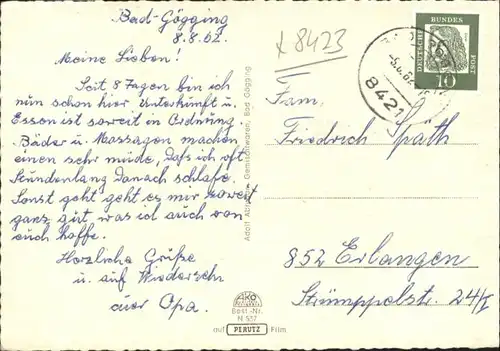 Bad-Gögging
8.8.62.
Meine Lieben!
Seit 8 Tagen bin ich
nun schon hier, Unterkunft u.
Essen ist soweit in Ordnung.
Bäder u. Massagen machen
einen sehr müde, daß ich oft
stundenlang danach schlafe.
Sonst geht geht es mir soweit
ganz gut, was ich auch von
euch hoffe.
Herzliche Grüße
u. auf Wiedersehn
euer Opa.
Gemischtwaren, Bad Gögging
Adolf
Best-Nr.
N 537
auf PERUTZ Film
x 8423
8421
DEUTSCHE BUNDESPOST
10
Fam.
Friedrich Späth
852 Erlangen
Strümppelstr. 24/I